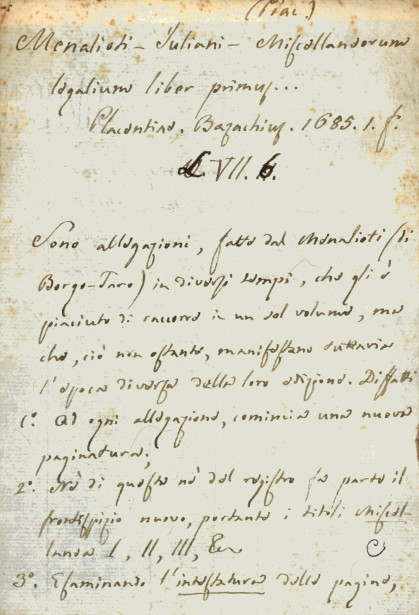 (Piac.)
Menalioti - Juliani - Miscellaneorum
legalium liber primus...
Placentiae. Bazachius. 1685. 1. f.
L. VII. 6.
Sono allegazioni, fatte dal Menalioti (di
Borgo-Taro) in diversi tempi, che gli è
piaciuto di raccorre in un sol volume, ma
che, ciò non ostante, manifestano tuttavia
l'epoca diversa della loro edizione. Diffatti
1º. Ad ogni allegazione, comincia una nuova
paginatura;
2º. Nè di queste nè del registro fa parte il
frontispizio nuovo, portante i titoli Miscel-
lanea I, II, III, &c
3º. Esaminando l'intestatura delle pagine,